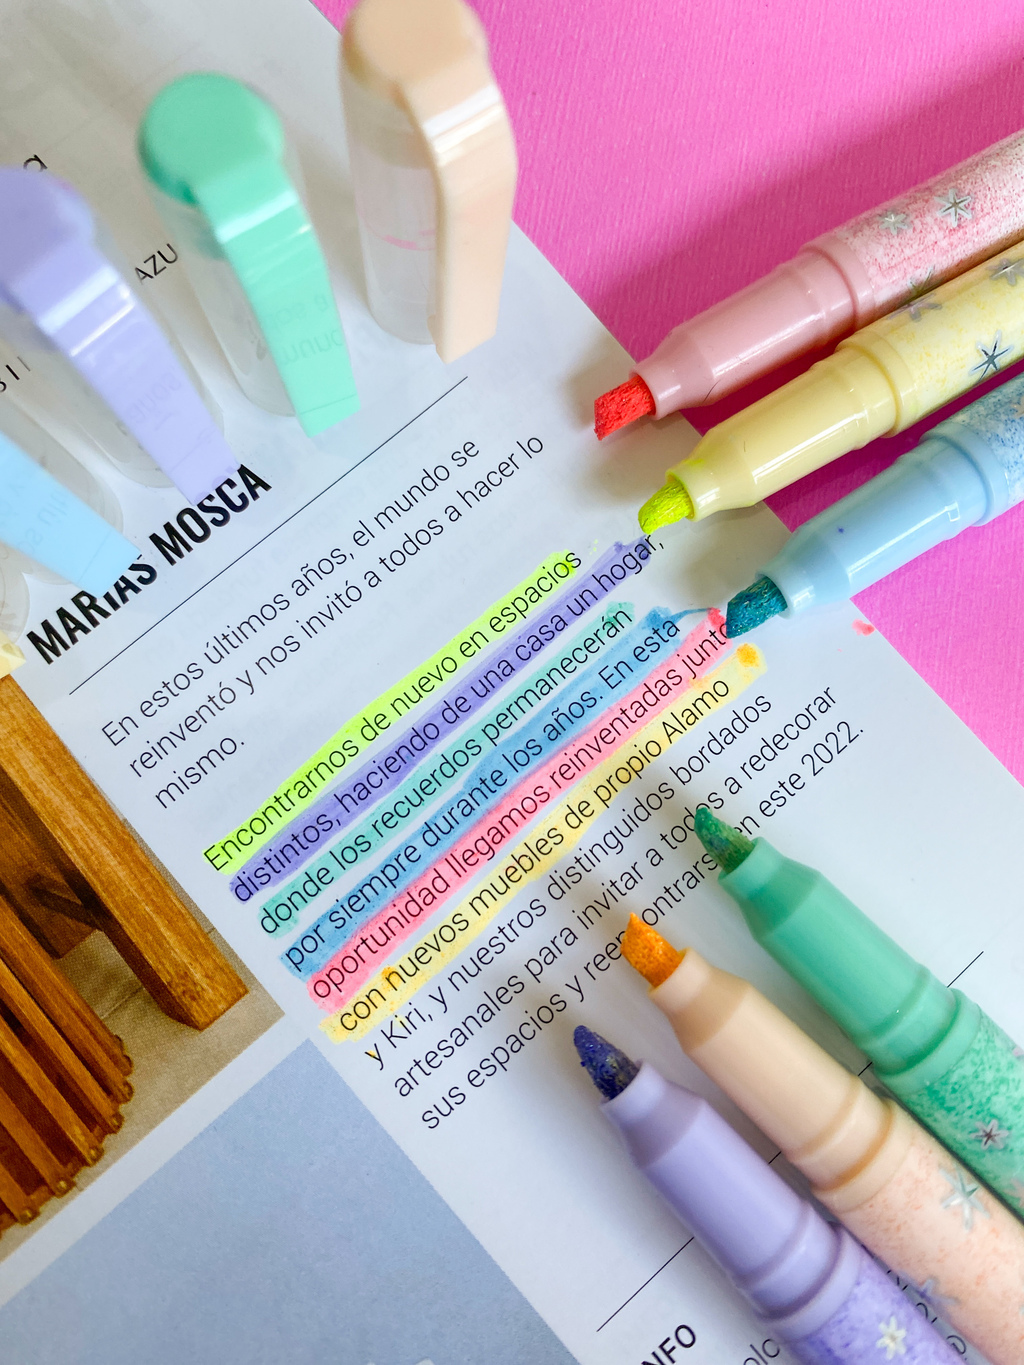 AZU
MARIAS MOSCA
En estos últimos años, el mundo se
reinventó y nos invitó a todos a hacer lo
mismo.
Encontrarnos de nuevo en espacios
distintos, haciendo de una casa un hogar,
donde los recuerdos permanecerán
por siempre durante los años. En esta
oportunidad llegamos reinventadas junto
con nuevos muebles de propio Alamo
y Kiri, y nuestros distinguidos bordados
artesanales para invitar a todos a redecorar
sus espacios y reencontrarse en este 2022.
NFO